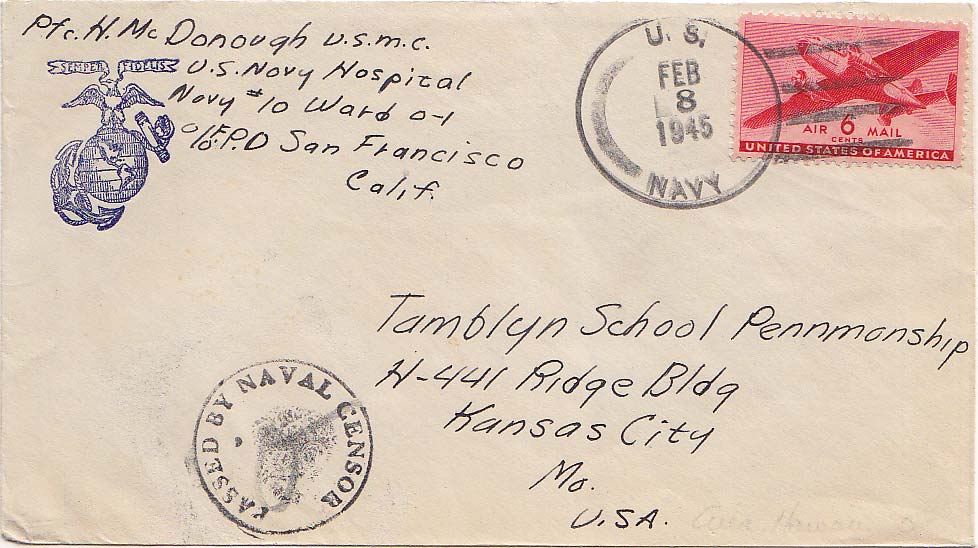 Pfc. H. Mc Donough U.S.M.C.
SEMPER FIDELIS
U.S. Navy Hospital
Navy #10 Ward O-1
c/o F.P.O San Francisco
Calif.
U. S.
FEB
8
1945
NAVY
AIR 6 MAIL
CENTS
UNITED STATES OF AMERICA
Tamblyn School Pennmanship
H-441 Ridge Bldg
Kansas City
Mo.
U.S.A.
PASSED BY NAVAL CENSOR